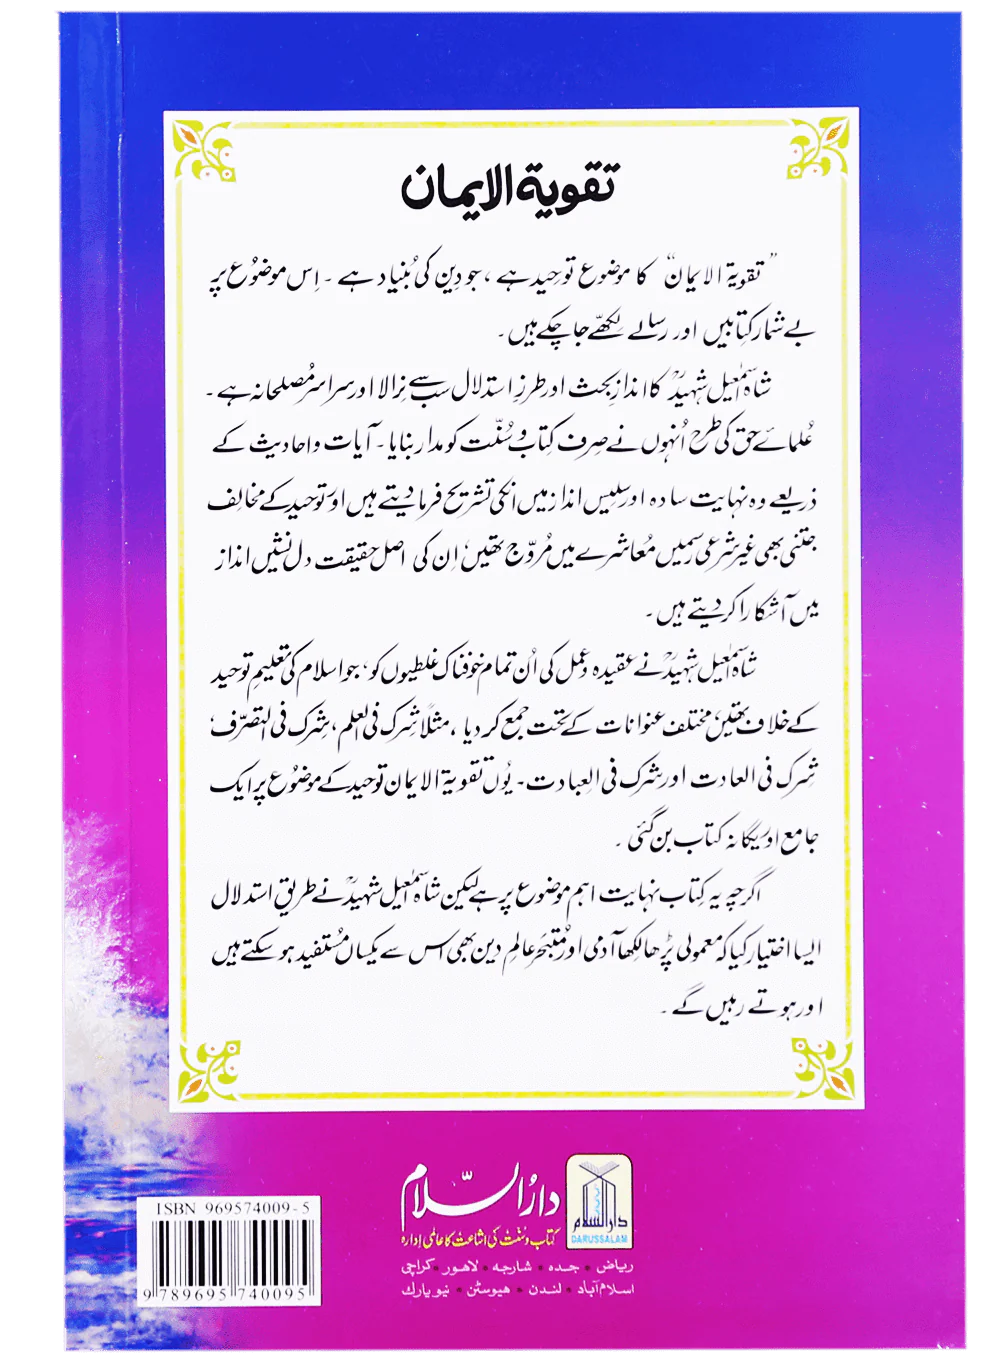 تقویۃ الایمان
”تقویۃ الایمان“ کا موضوع توحید ہے ، جو دِین کی بُنیاد ہے ۔ اِس موضُوع پر
بے شمار کِتابیں اور رسالے لِکھّے جا چکے ہیں ۔
شاہ اسمٰعیل شہیدؒ کا اندازِ بحث اور طرزِ استدلال سب سے نِرالا اور سراسر مُصلحانہ ہے ۔
عُلمائے حق کی طرح اُنہوں نے صِرف کِتاب و سُنّت کو مدار بنایا ۔ آیات و احادیث کے
ذریعے وہ نہایت سادہ اور سلِیس انداز میں انکی تشریح فرما دیتے ہیں اور توحید کے مخالف
جتنی بھی غیر شرعی رسمیں مُعاشرے میں مُروّج تھیں‘ اِن کی اصل حقیقت دل نشِیں انداز
میں آشکارا کر دیتے ہیں ۔
شاہ اسمٰعیل شہیدؒ نے عقیدہ و عمل کی اُن تمام خوفناک غلطیوں کو‘ جو اسلام کی تعلیمِ توحید
کے خلاف تھیں‘ مختلف عنوانات کے تحت جمع کر دیا ، مثلاً شِرک فی العلم ، شِرک فی التصرّف‘
شِرک فی العادت اور شرک فی العِبادت ۔ یُوں تقویۃ الایمان توحید کے موضُوع پر ایک
جامع اور یگانہ کتاب بن گئی ۔
اگرچہ یہ کِتاب نہایت اہم موضوع پر ہے لیکن شاہ اسمٰعیل شہیدؒ نے طریقِ استدلال
ایسا اختیار کیا کہ معمولی پڑھا لکھا آدمی اور مُتبحّر عالمِ دین بھی اس سے یکساں مُستفید ہو سکتے ہیں
اور ہوتے رہیں گے ۔
دارُالسّلام
کتاب و سُنّت کی اشاعت کا عالمی اِدارہ
دارالسلام
DARUSSALAM
ریاض • جدہ • شارجہ • لاھور • کراچی
اسلام آباد • لندن • ھیوسٹن • نیویارک
ISBN 969574009-5
9 789695 740095